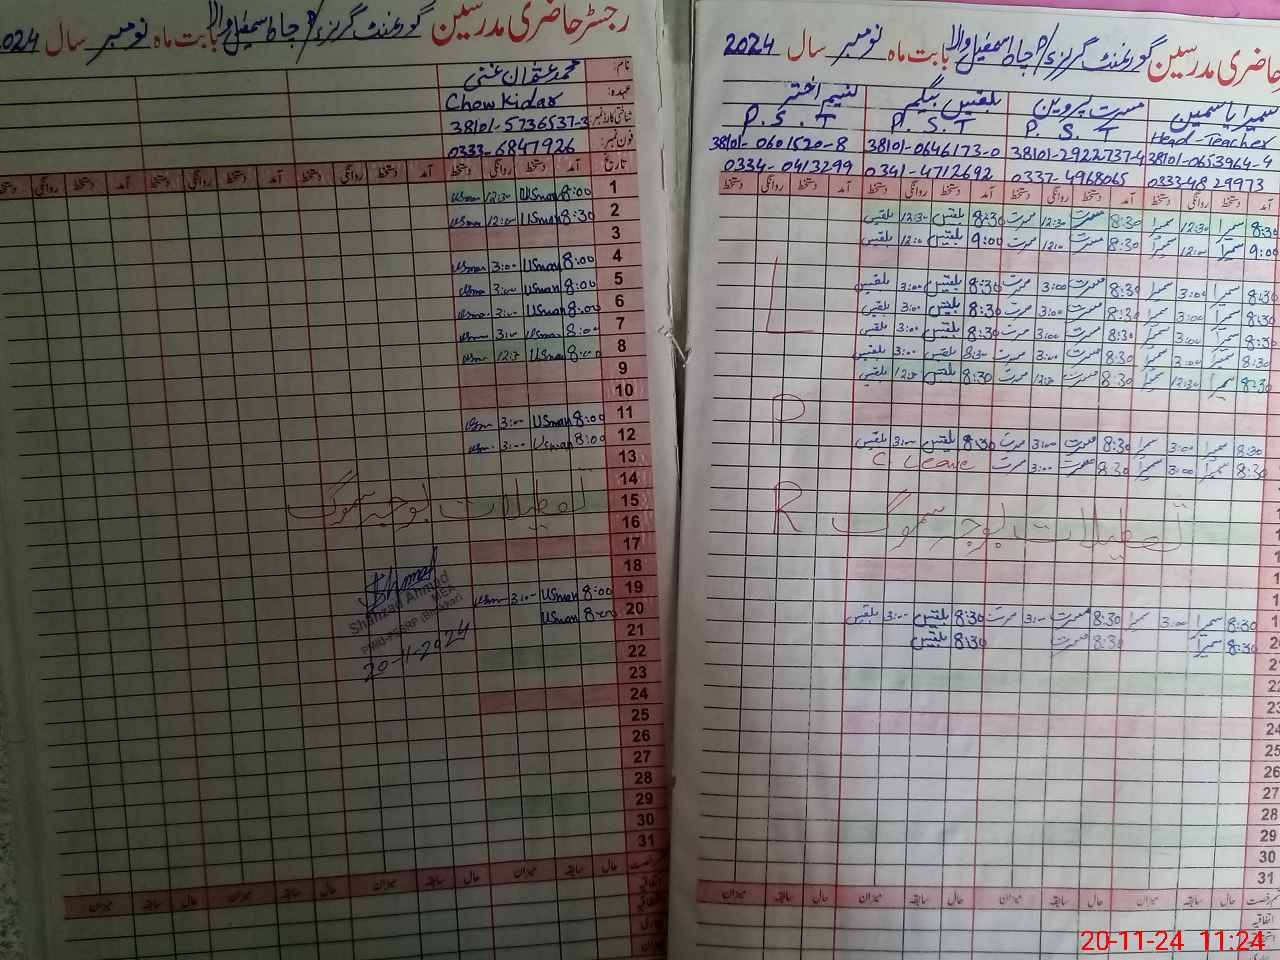 رجسٹر حاضری مدرسین گورنمنٹ گرلز P/ چاہ اسمعیل والا بابت ماہ نومبر سال 2024
نام: محمد عثمان غنی
عہدہ: Chowkidar
شناختی کارڈ نمبر: 38101-5736537-3
فون نمبر: 0333-6847926
تاریخ آمد دستخط روانگی دستخط آمد دستخط روانگی دستخط آمد دستخط روانگی دستخط آمد دستخط روانگی دستخط
1 8:00 USman 12:30 Usman
2 8:30 USman 12:00 Usman
3
4 8:00 USman 3:00 Usman
5 8:00 USman 3:00 Usman
6 8:00 USman 3:00 Usman
7 8:00 USman 3:00 Usman
8 8:00 USman 12:30 Usman
9
10
11 8:00 USman 3:00 Usman
12 8:00 USman 3:00 Usman
13
14
15 تعطیلات بوجہ سموگ
16
17
18
19 8:00 USman 3:00 Usman
20 8:00 USman
21
22
23
24
25
26
27
28
29
30
31
Shahzad Ahmad
20-11-2024
حال سابقہ میزان حال سابقہ میزان حال سابقہ میزان حال سابقہ میزان
حاضری مدرسین گورنمنٹ گرلز P/ چاہ اسمعیل والا بابت ماہ نومبر سال 2024
سمیرا یاسمین مسرت پروین بلقیس بیگم نسیم اختر
Head-Teacher P.S.T P.S.T P.S.T
38101-0653964-4 38101-2922737-4 38101-0646173-0 38101-0601520-8
0333-4829973 0337-4968065 0341-4712692 0334-0413299
آمد دستخط روانگی دستخط آمد دستخط روانگی دستخط آمد دستخط روانگی دستخط آمد دستخط روانگی دستخط
8:30 سمیرا 12:30 سمیرا 8:30 مسرت 12:30 مسرت 8:30 بلقیس 12:30 بلقیس
9:00 سمیرا 12:00 سمیرا 8:30 مسرت 12:00 مسرت 9:00 بلقیس 12:00 بلقیس
8:30 سمیرا 3:00 سمیرا 8:30 مسرت 3:00 مسرت 8:30 بلقیس 3:00 بلقیس
L
8:30 سمیرا 3:00 سمیرا 8:30 مسرت 3:00 مسرت 8:30 بلقیس 3:00 بلقیس
8:30 سمیرا 3:00 سمیرا 8:30 مسرت 3:00 مسرت 8:30 بلقیس 3:00 بلقیس
8:30 سمیرا 3:00 سمیرا 8:30 مسرت 3:00 مسرت 8:30 بلقیس 3:00 بلقیس
8:30 سمیرا 12:30 سمیرا 8:30 مسرت 12:30 مسرت 8:30 بلقیس 12:30 بلقیس
P
8:30 سمیرا 3:00 سمیرا 8:30 مسرت 3:00 مسرت 8:30 بلقیس 3:00 بلقیس
8:30 سمیرا 3:00 سمیرا 8:30 مسرت 3:00 مسرت C. Leave
R
تعطیلات بوجہ سموگ
8:30 سمیرا 3:00 سمیرا 8:30 مسرت 3:00 مسرت 8:30 بلقیس 3:00 بلقیس
8:30 سمیرا 8:30 مسرت 8:30 بلقیس
23
24
25
26
27
28
29
30
31
حال سابقہ میزان حال سابقہ میزان حال سابقہ میزان حال سابقہ میزان
اتفاقیہ
20-11-24 11:24